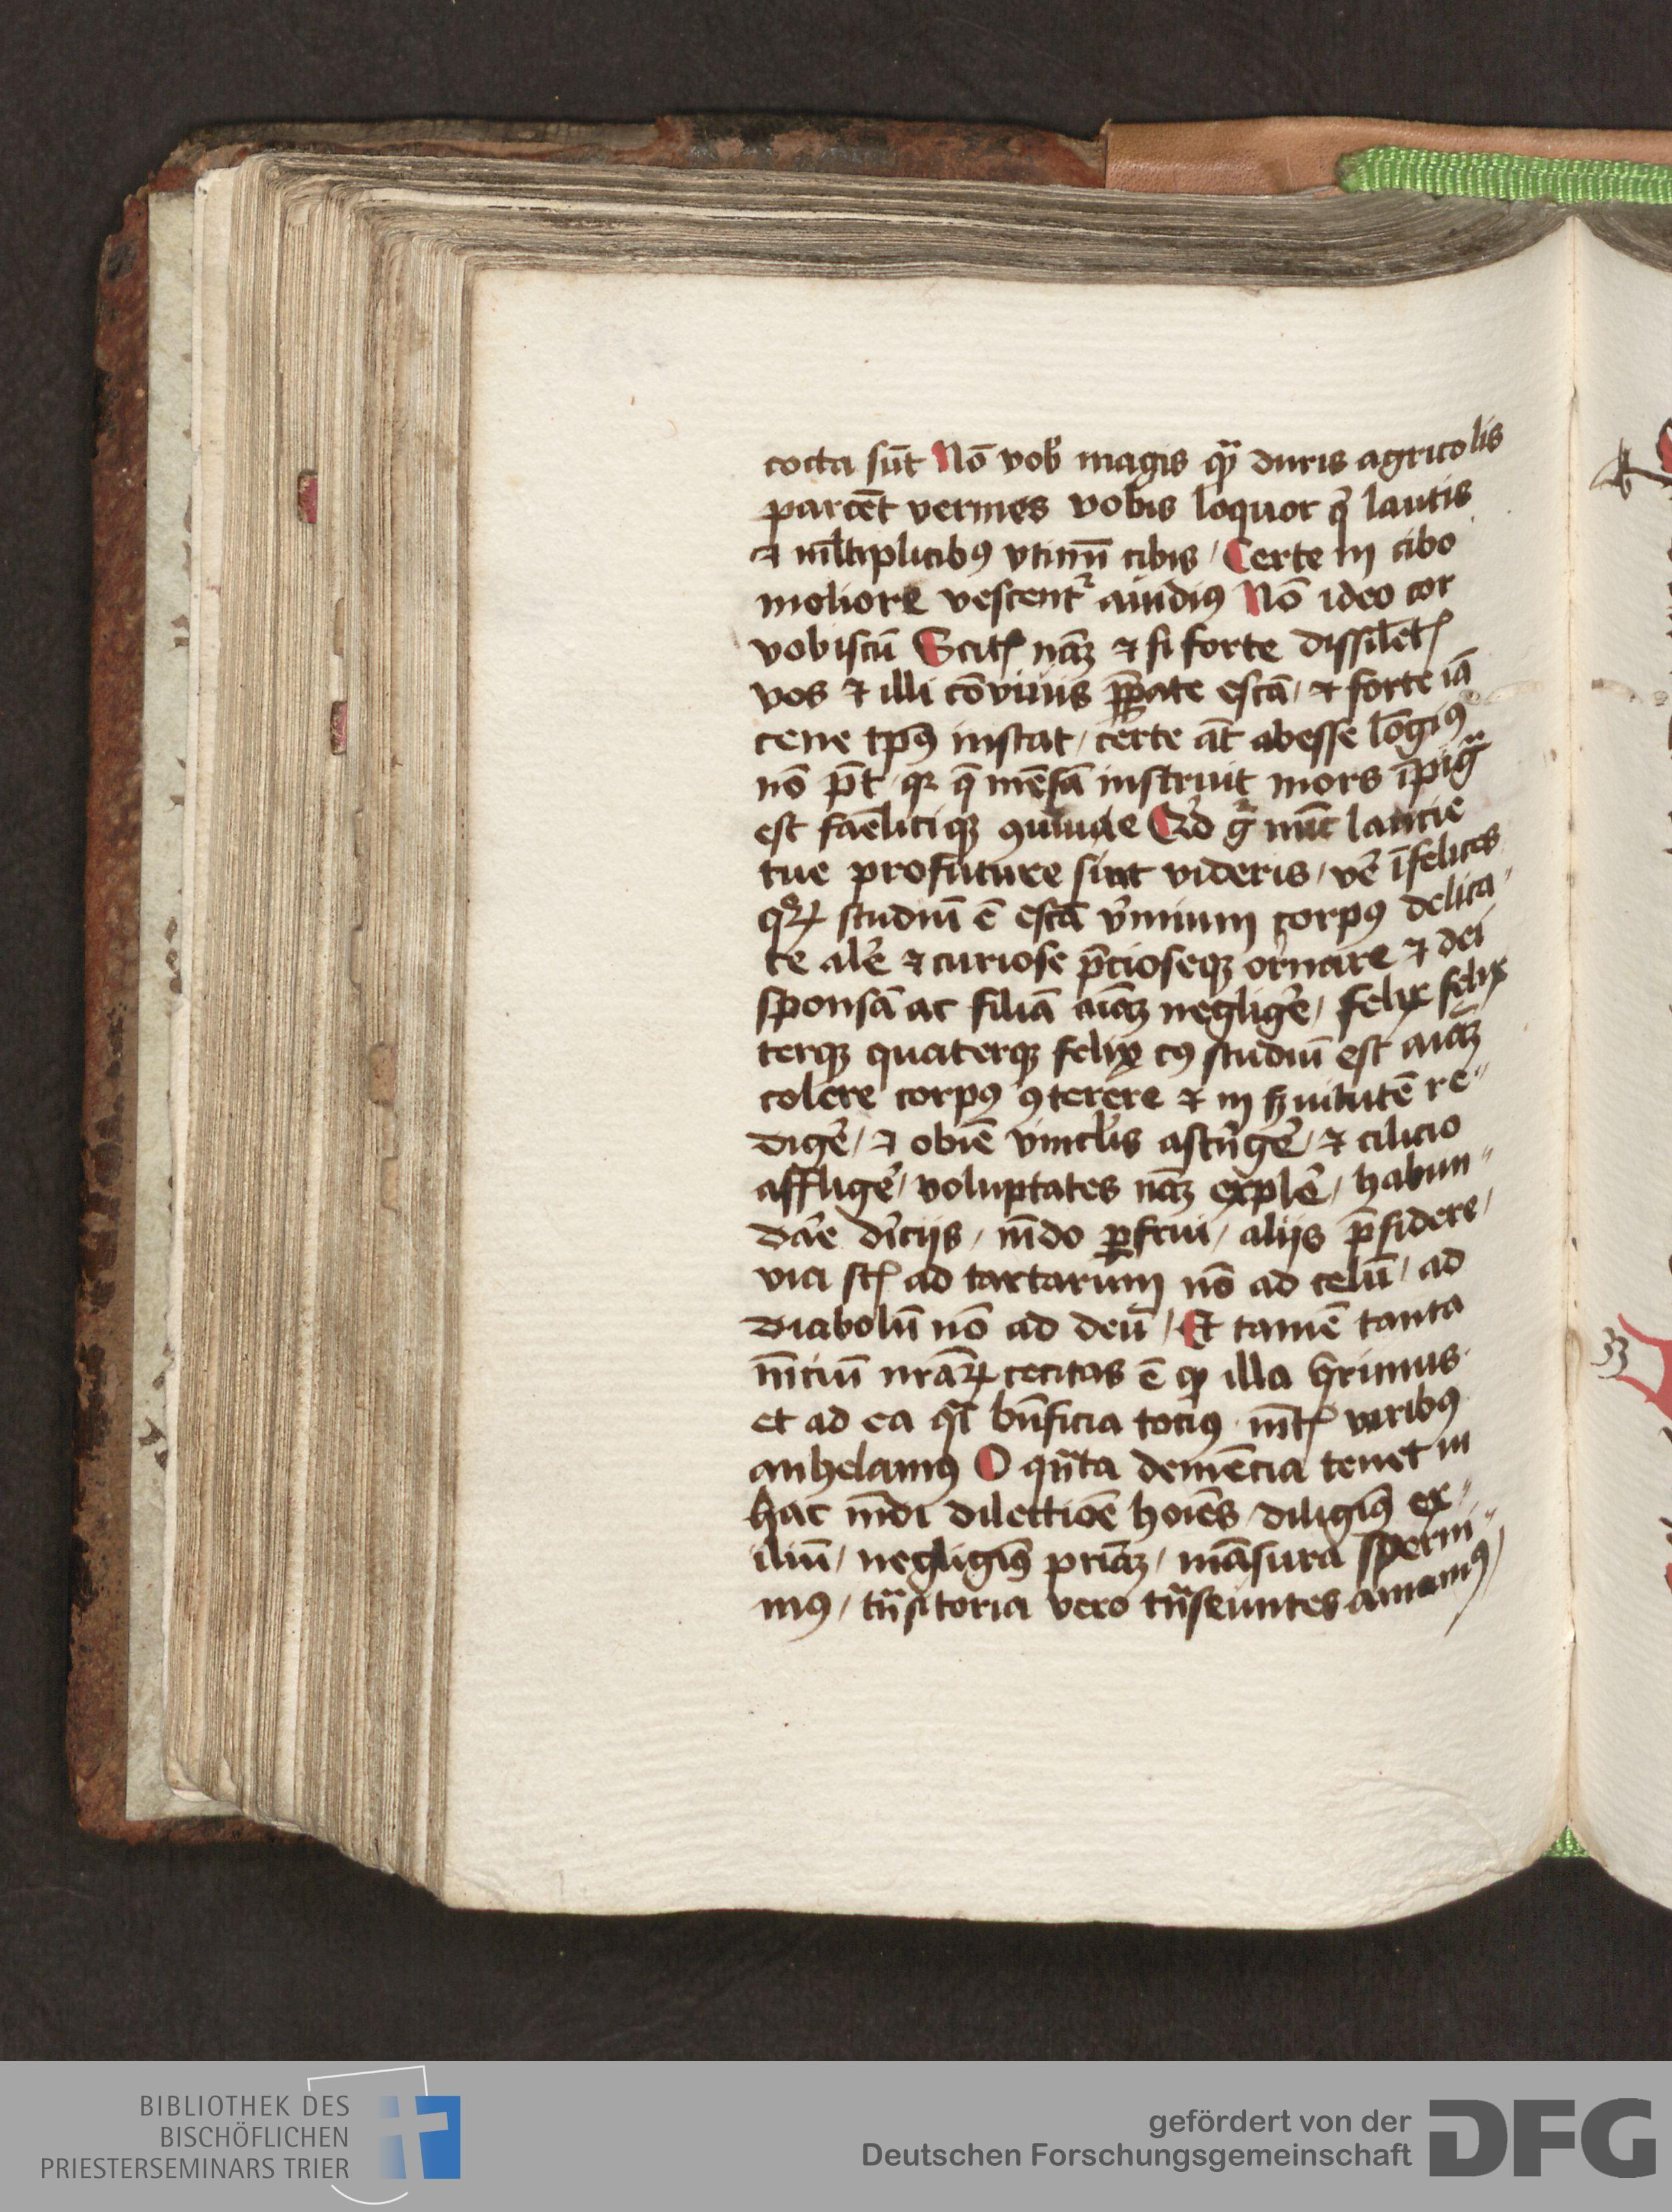 cocta sūt Nō vob magis qͣ duris agricolis
parcēt vermes vobis loquor q lautis
⁊ mltiplicibꝯ vtimī cibis / Certe in cibo
moliore vescent auidiꝯ Nō ideo cor
vobiscū Scitꝭ nāꝫ ⁊ si forte dissiletꝭ
vos ⁊ illi cōviuis ꝑpate escā / ⁊ forte iā
cene tpꝯ instat / certe āt abesse lōgiꝯ
nō pt / qꝛ q̄ mēsā instruit mors īpigͣ
est fameliciqꝫ ꝯuiuae Qd gͦ nūc lauticie
tue profuture sint videris / vē īfelices
qͦꝝ studiū ē escā vmium corpꝯ delica
te alē ⁊ curiose p̄cioseqꝫ ornare ⁊ dei
sponsā ac filiā aīaꝫ negligē / felix felix
terqꝫ quaterqꝫ felix cꝯ studiū est aīaꝫ
colere corpꝯ ꝯterere ⁊ in ẜuitutē re"
digē / ⁊ obiē vinclis astngē / ⁊ cilicio
affligē / voluptates nāꝫ explē / habun"
dare diciis / mūdo ꝑfrui / aliis p̄sidere /
via stꝭ ad tartarum nō ad celū / ad
diabolū nō ad deū / Et tamē tanta
mēciū nrāꝝ cecitas ē ꝙ illa q̄rimus
et ad ea qͣi bn̄ficia tociꝯ mtꝭ viribꝯ
anhelamꝯ O qn̄ta demēcia tenet in
hac mūdi dilectiōē hoiēs / diligimꝯ ex"
iliū / negligimꝯ pr̄iaꝫ / māsura sperni"
mꝯ / trn̄sitoria vero trn̄seuntes amamꝯ /
BIBLIOTHEK DES
BISCHÖFLICHEN
PRIESTERSEMINARS TRIER
gefördert von der
Deutschen Forschungsgemeinschaft
DFG